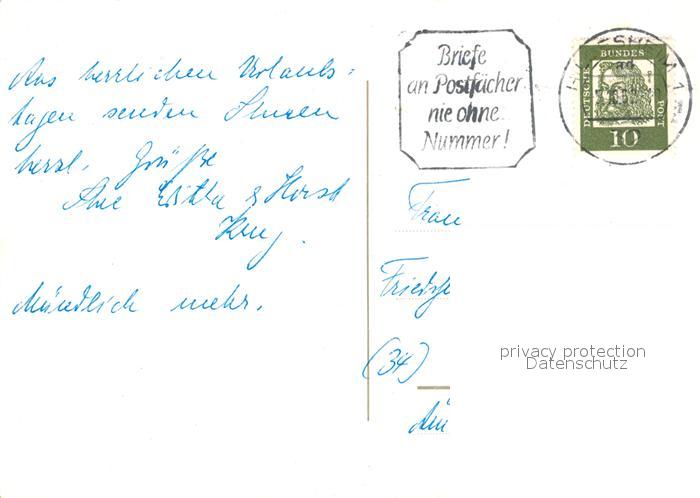 Aus herrlichen Urlaubs-
tagen senden Ihnen
herzl. Grüße
Ihre Editha & Horst
Krug.
Mündlich mehr.
Briefe
an Postfächer
nie ohne
Nummer!
DEUTSCHE
BUNDES
POST
10
Frau
Friedsche
(34)
privacy protection
Datenschutz